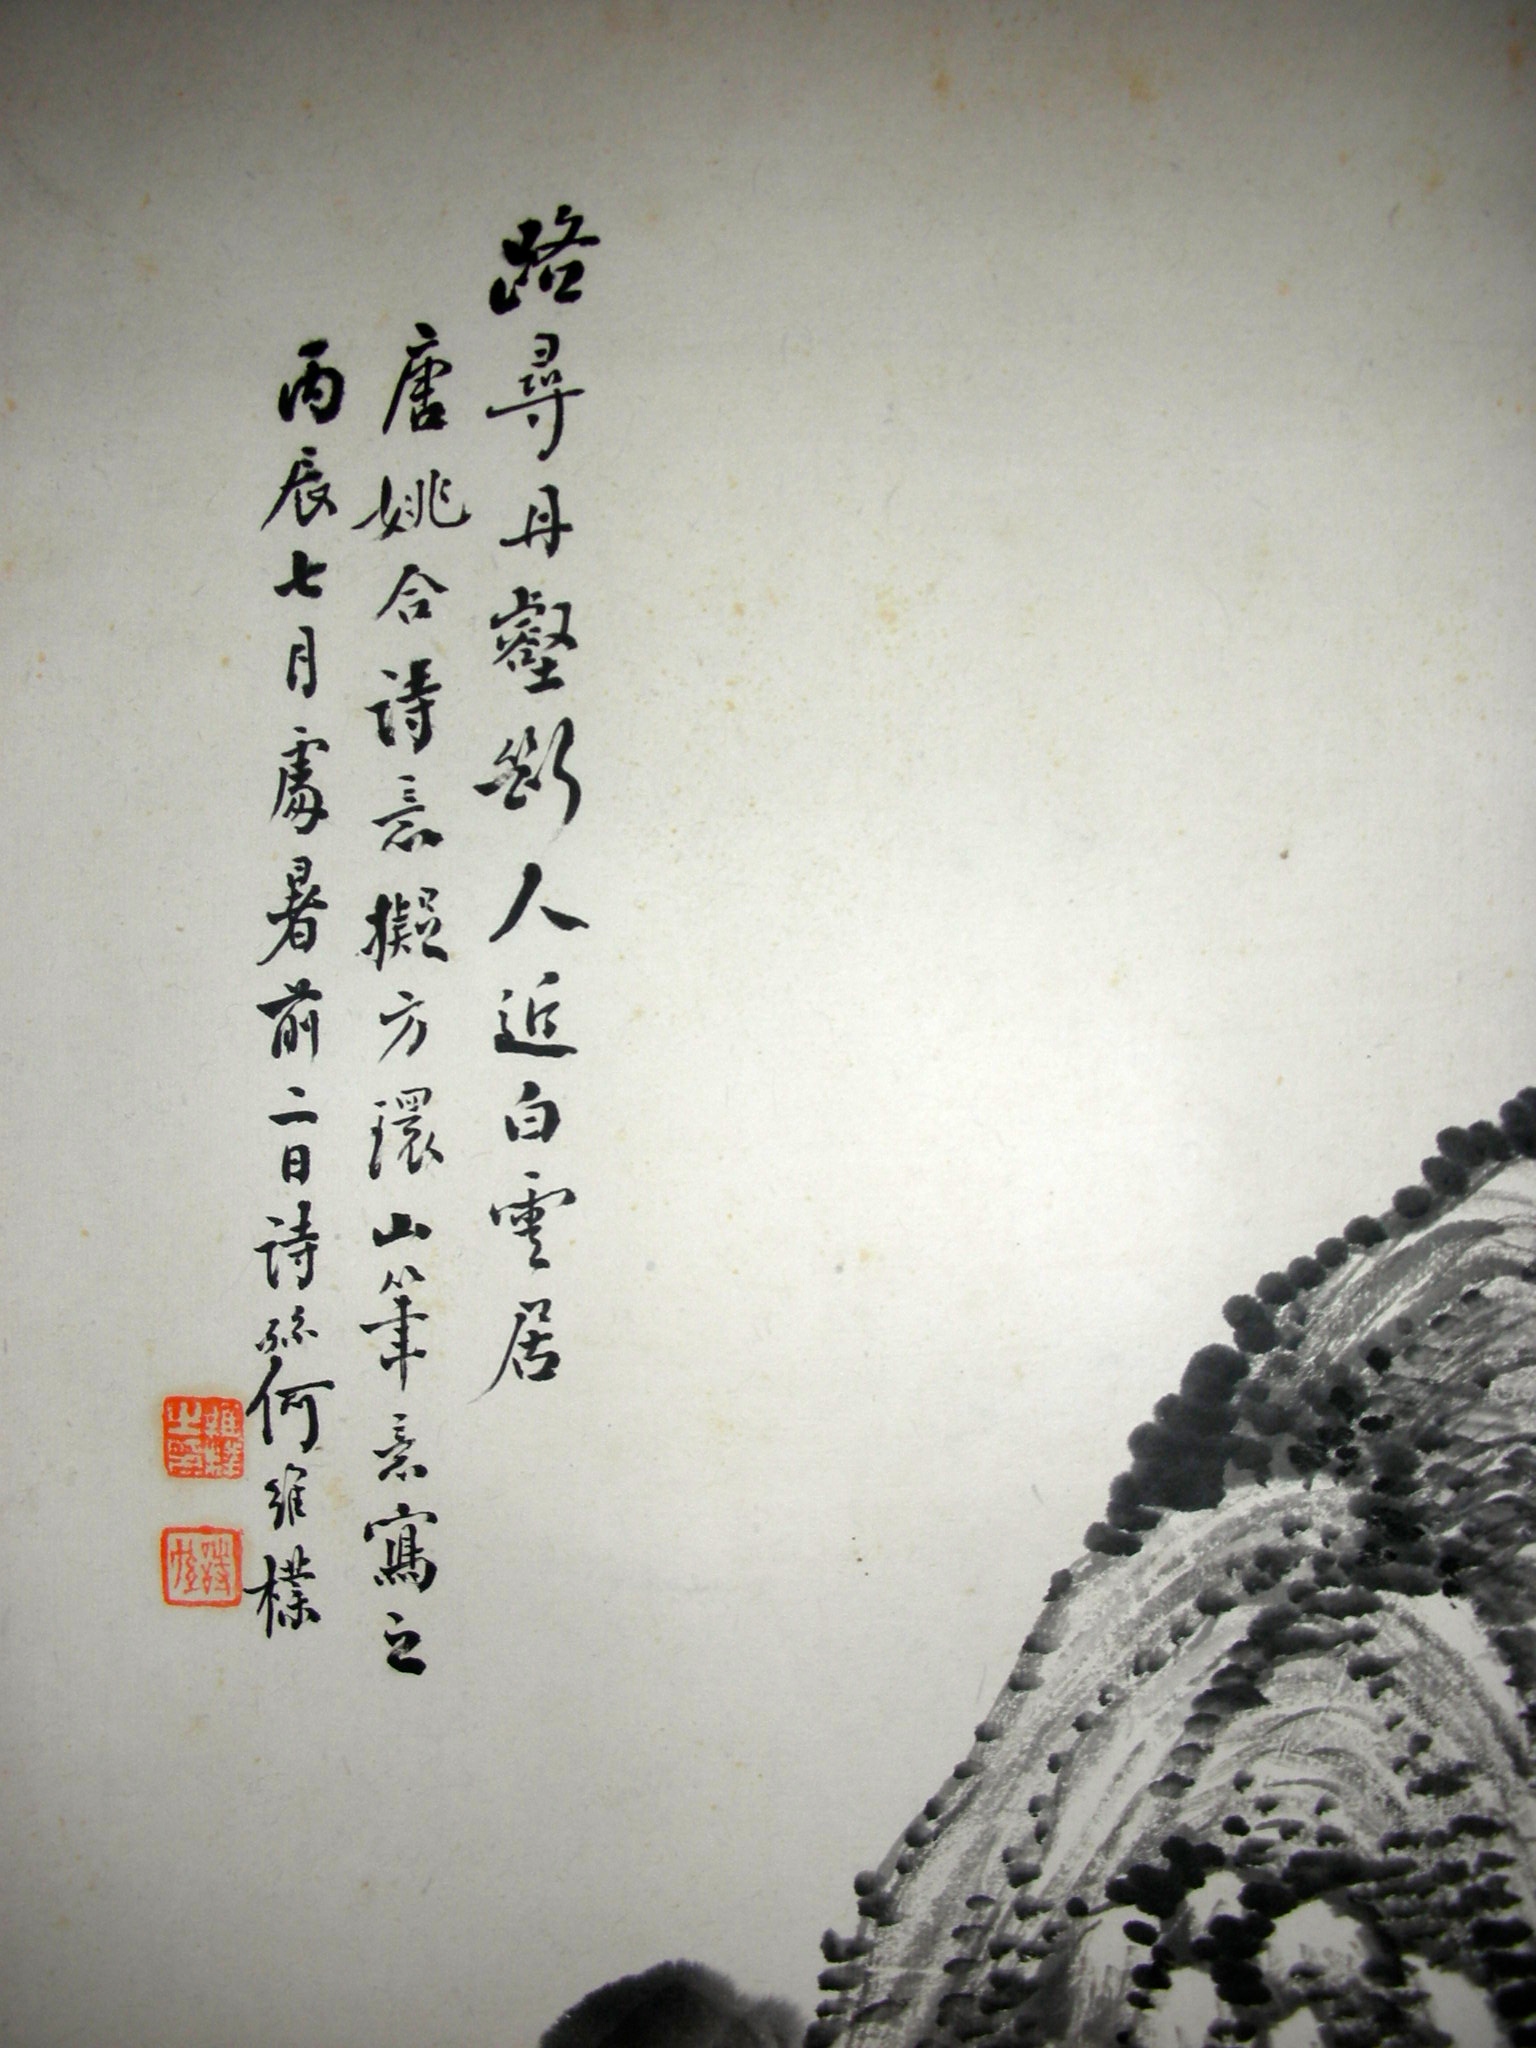 路尋丹壑斷人近白雲居
唐姚合詩意擬方環山筆意寫之
丙辰七月處暑前二日詩孫何維樸
維樸之印
詩孫